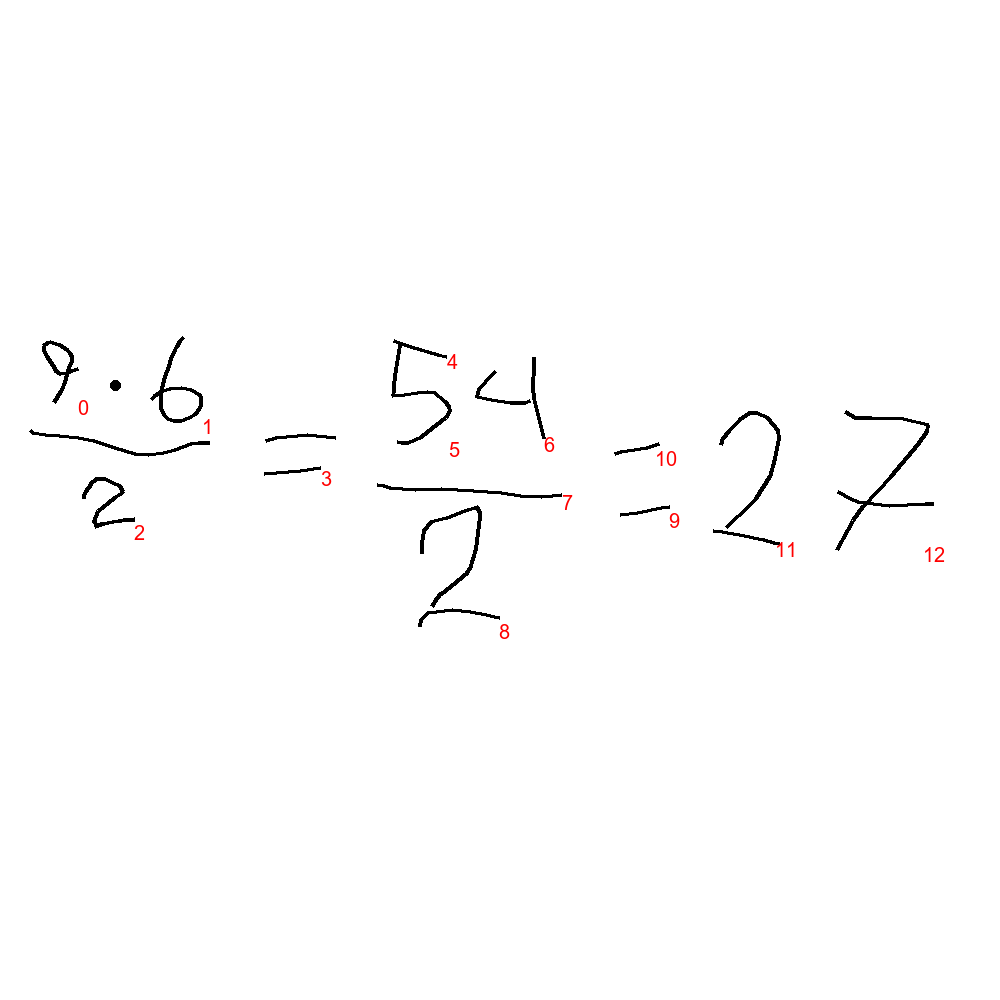 9 · 6 / 2 = 54 / 2 = 27
0 1 2 3 4 5 6 7 8 10 9 11 12